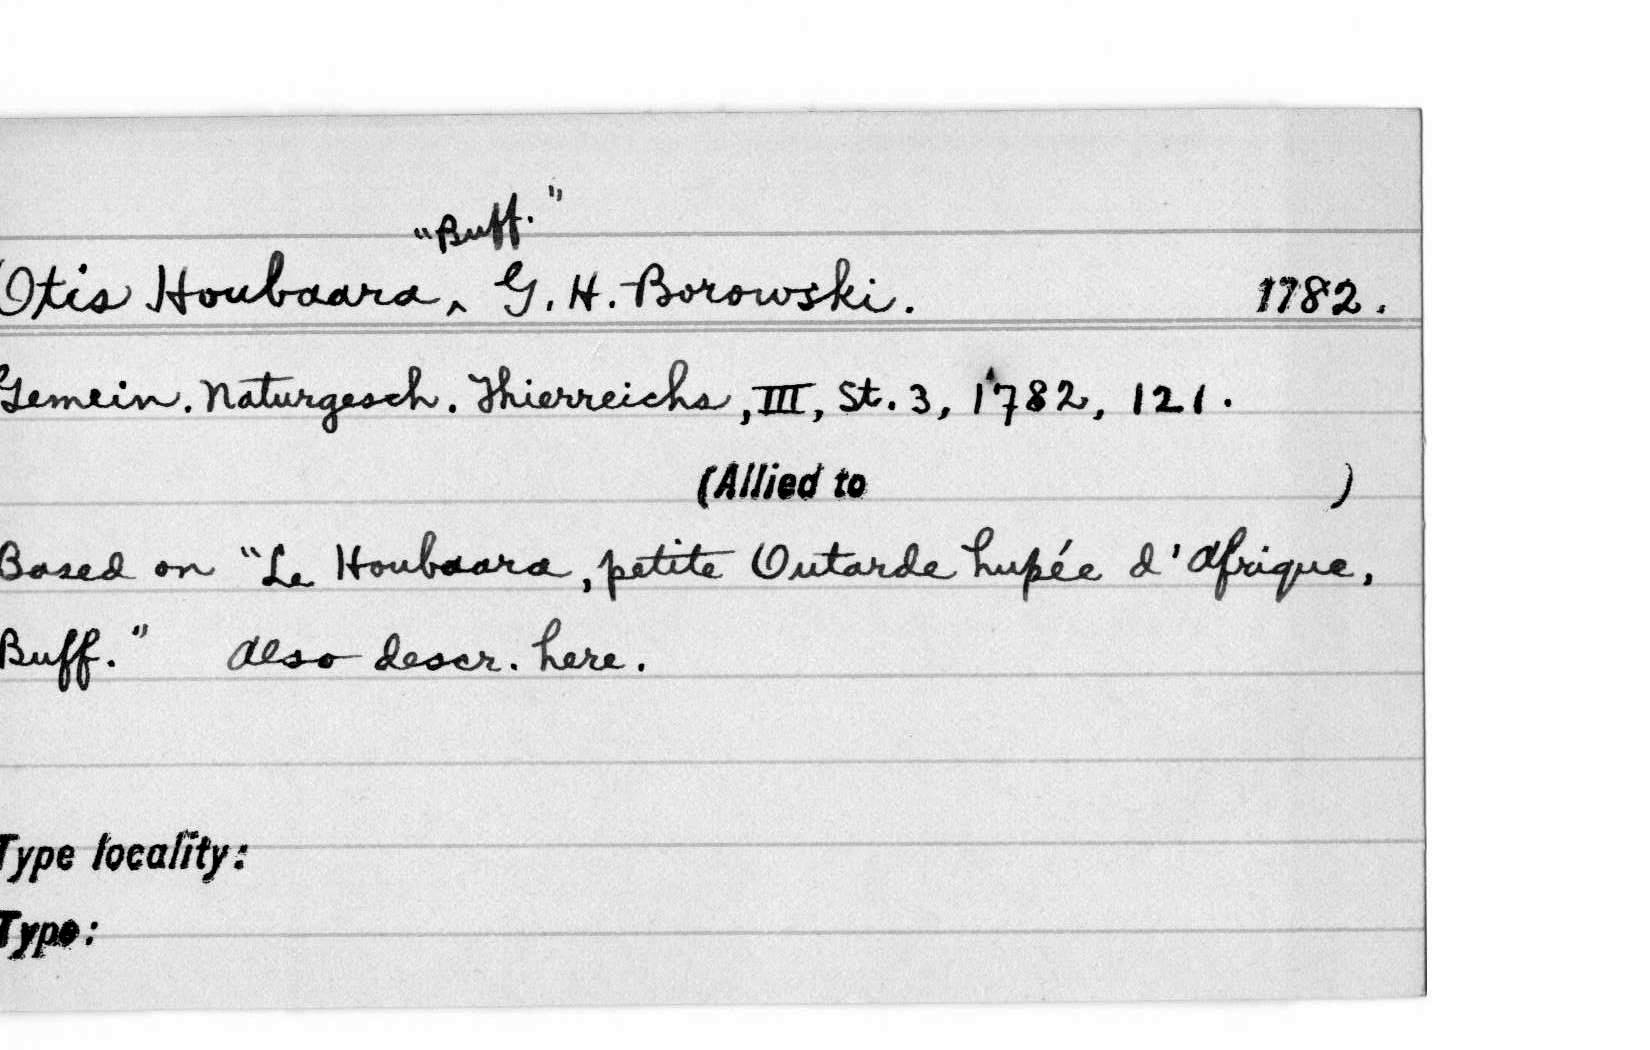 "Buff."
Otis Houbaara ^ G. H. Borowski. 1782.
Gemein. Naturgesch. Thierreichs, III, St. 3, 1782, 121.
(Allied to )
Based on "Le Houbaara, petite Outarde hupée d'Afrique,
Buff." Also descr. here.
Type locality:
Type: